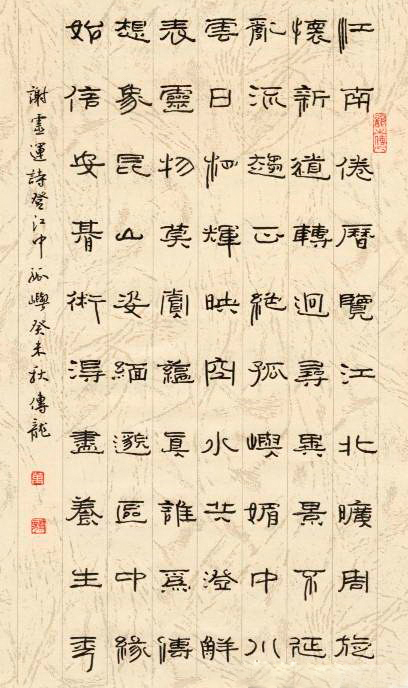 江南倦曆覽江北曠周旋
懷新道轉迥尋異景不延
亂流趨正絕孤嶼媚中川
雲日相輝映空水共澄鮮
表靈物莫賞蘊真誰爲傳
想象昆山姿緬邈區中緣
始信安期術得盡養生年
謝靈運詩登江中孤嶼癸未秋傳龍